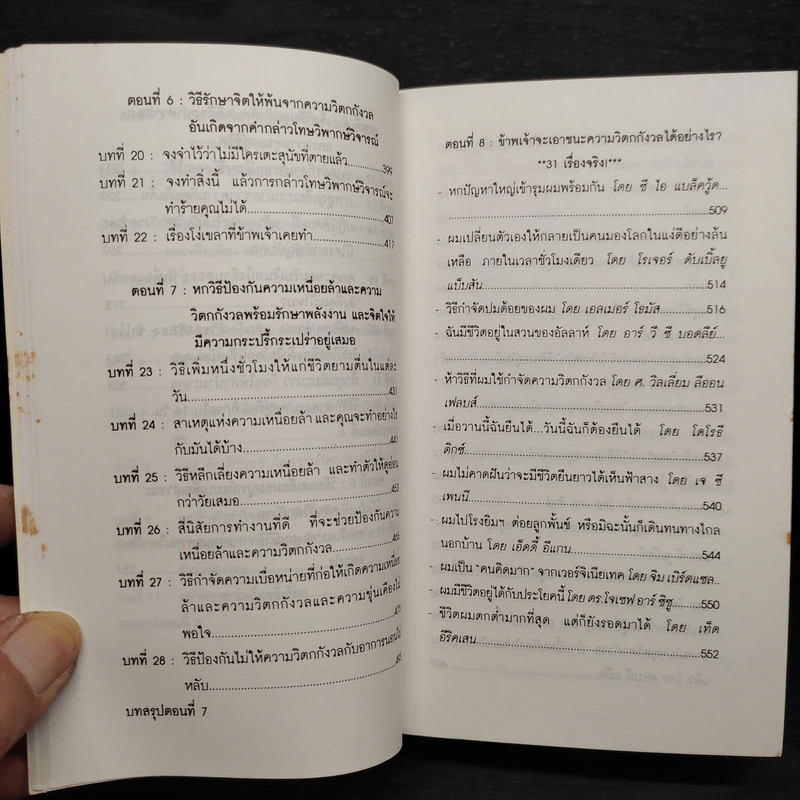 ตอนที่ 6 : วิธีรักษาจิตให้พ้นจากความวิตกกังวล
อันเกิดจากคำกล่าวโทษวิพากษ์วิจารณ์
บทที่ 20 : จงจำไว้ว่าไม่มีใครเตะสุนัขที่ตายแล้ว..........399
บทที่ 21 : จงทำสิ่งนี้ แล้วการกล่าวโทษวิพากษ์วิจารณ์จะ
ทำร้ายคุณไม่ได้..........407
บทที่ 22 : เรื่องโง่เขลาที่ข้าพเจ้าเคยทำ..........417
ตอนที่ 7 : หกวิธีป้องกันความเหนื่อยล้าและความ
วิตกกังวลพร้อมรักษาพลังงาน และจิตใจให้
มีความกระปรี้กระเปร่าอยู่เสมอ
บทที่ 23 : วิธีเพิ่มหนึ่งชั่วโมงให้แก่ชีวิตยามตื่นในแต่ละ
วัน..........431
บทที่ 24 : สาเหตุแห่งความเหนื่อยล้า และคุณจะทำอย่างไร
กับมันได้บ้าง..........441
บทที่ 25 : วิธีหลีกเลี่ยงความเหนื่อยล้า และทำตัวให้ดูอ่อน
กว่าวัยเสมอ..........453
บทที่ 26 : สี่นิสัยการทำงานที่ดี ที่จะช่วยป้องกันความ
เหนื่อยล้าและความวิตกกังวล..........465
บทที่ 27 : วิธีกำจัดความเบื่อหน่ายที่ก่อให้เกิดความเหนื่อย
ล้าและความวิตกกังวลและความขุ่นเคืองไม่
พอใจ..........475
บทที่ 28 : วิธีป้องกันไม่ให้ความวิตกกังวลกับอาการนอนไม่
หลับ..........
บทสรุปตอนที่ 7
ตอนที่ 8 : ข้าพเจ้าจะเอาชนะความวิตกกังวลได้อย่างไร?
**31 เรื่องจริง!***
- หกปัญหาใหญ่เข้ารุมผมพร้อมกัน โดย ซี ไอ แบล็ควู้ด...
..........509
- ผมเปลี่ยนตัวเองให้กลายเป็นคนมองโลกในแง่ดีอย่างล้น
เหลือ ภายในเวลาชั่วโมงเดียว โดย โรเจอร์ ดับเบิ้ลยู
แบ็บสัน..........514
- วิธีกำจัดปมด้อยของผม โดย เอลเมอร์ โธมัส..........516
- ฉันมีชีวิตอยู่ในสวนของอัลลาห์ โดย อาร์ วี ซี บอดลีย์..
..........524
- ห้าวิธีที่ผมใช้กำจัดความวิตกกังวล โดย ศ. วิลเลี่ยม ลีออน
เฟลบส์..........531
- เมื่อวานนี้ฉันยืนได้...วันนี้ฉันก็ต้องยืนได้ โดย โดโรธี
ดิกซ์..........537
- ผมไม่คาดฝันว่าจะมีชีวิตยืนยาวได้เห็นฟ้าสาง โดย เจ ซี
เพนนี..........540
- ผมไปโรงยิมฯ ต่อยลูกพั้นช์ หรือมิฉะนั้นก็เดินทนทางไกล
นอกบ้าน โดย เอ็ดดี้ อีแกน..........544
- ผมเป็น "คนคิดมาก" จากเวอร์จิเนียเทค โดย จิม เบิร์ดแซล..
- ผมมีชีวิตอยู่ได้กับประโยคนี้ โดย ดร.โจเซฟ อาร์ ซิซู..........550
- ชีวิตผมตกต่ำมากที่สุด แต่ก็ยังรอดมาได้ โดย เท็ด
อีริคเสน..........552